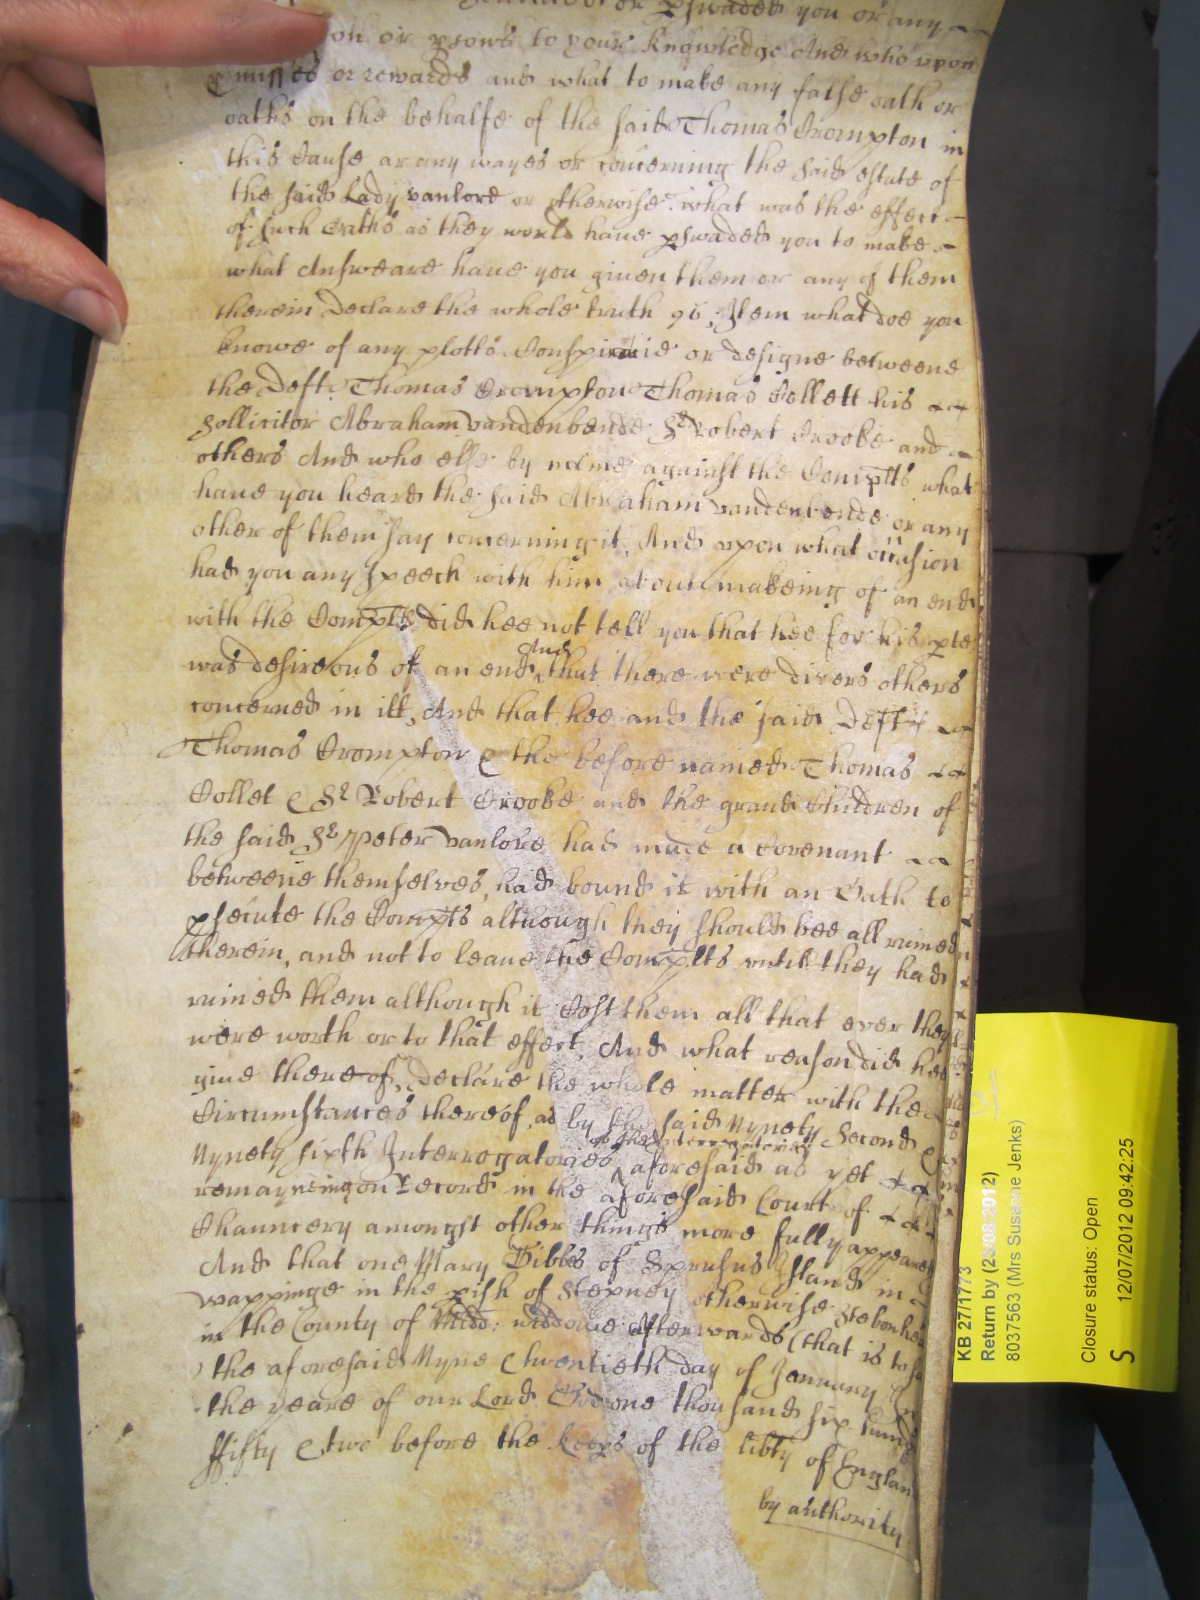 or pswaded you or any
on or psons to your knowledge And who upon
pmisses or rewards and what to make any false oath or
oaths on the behalfe of the said Thomas Crompton in
this Cause or any wayes or concerning the said estate of
the said Lady vanlore or otherwise what was the effect
of such Oaths as they would have pswaded you to make
what Answeare have you given them or any of them
therein Declare the whole truth 96, Item what doe you
knowe of any plotts Conspiracie or designe betweene
the Deft: Thomas Crompton Thomas Collett his
Sollicitor Abraham vandenbende Sr Robert Crooke and
others And who else by name against the Complts what
have you heard the said Abraham vandenbende or any
other of them say concerning it, And upon what occasion
had you any speech with him about makeing of an end
with the Complts did hee not tell you that hee for his pte
was desireous of an end And that there were divers others
concerned in itt, And that hee and the said Deft
Thomas Crompton & the before named Thomas
Collet & Sr Robert Crooke and the grand Children of
the said Sr Peter vanlore had made a Covenant
betweene themselves, had bound it with an Oath to
psecute the Complts although they should bee all ruined
therein, and not to leave the Complts untill they had
ruined them although it Cost them all that ever they
were worth or to that effect, And what reason did hee
give thereof, Declare the whole matter with the
Circumstances thereof, as by the said Nynety Second &
Nynety sixth Interrogatories of the Interrogatories aforesaid as yet
remayneing on Record in the aforesaid Court of
Chauncery amongst other things more fully appeares
And that one Mary Gibbs of Sprusus Island in
wappinge in the pish of Stepney otherwise Stebonheath
in the County of Midd: widdowe afterwards (that is to say
the aforesaid Nyne & twentieth day of January In
the yeare of our Lord God one thousand six hund
ffifty & two before the keeps of the libty of England
by authority
KB 27/1773
Return by (23/08/2012)
8037563 (Mrs Susanne Jenks)
Closure status: Open
S 12/07/2012 09:42:25